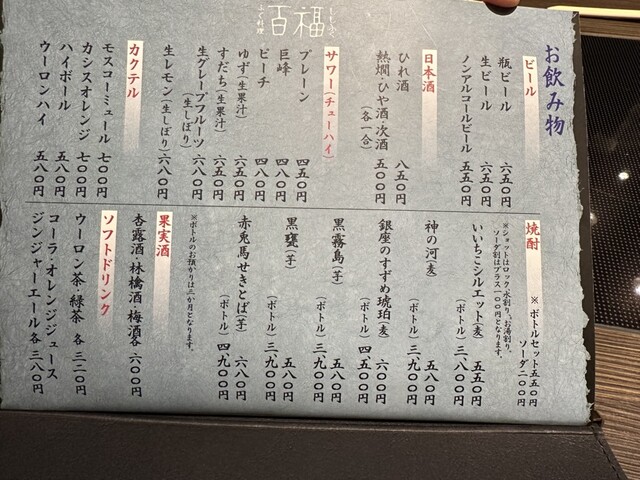 百福
ふぐ料理
お飲み物
ビール
瓶ビール 六五〇円
生ビール 六五〇円
ノンアルコールビール 五五〇円
日本酒
ひれ酒 八五〇円
熱燗・ひや酒・次酒 五〇〇円
(各一合)
サワー(チューハイ)
プレーン 四五〇円
巨峰 四八〇円
ピーチ 四八〇円
ゆず(生果汁) 六五〇円
すだち(生果汁) 六五〇円
生グレープフルーツ(生しぼり) 六八〇円
生レモン(生しぼり) 六八〇円
カクテル
モスコーミュール 七〇〇円
カシスオレンジ 七〇〇円
ハイボール 五八〇円
ウーロンハイ 五八〇円
焼酎
※ボトルセット五五〇円
ソーダ二〇〇円
※ショットはロック、水割り、お湯割り、
ソーダ割はプラス一〇〇円となります。
いいちこシルエット(麦) 五五〇円
(ボトル) 三、八〇〇円
神の河(麦) 五八〇円
(ボトル) 三、九〇〇円
銀座のすずめ琥珀(麦) 六〇〇円
(ボトル) 四、五〇〇円
黒霧島(芋) 五八〇円
(ボトル) 三、九〇〇円
黒甕(芋) 五八〇円
(ボトル) 三、九〇〇円
赤兎馬せきとば(芋) 六八〇円
(ボトル) 四、九〇〇円
※ボトルのお預かりは三か月となります。
果実酒
杏露酒・林檎酒・梅酒各 六〇〇円
ソフトドリンク
ウーロン茶・緑茶 各 三二〇円
コーラ・オレンジジュース
ジンジャーエール各 三八〇円